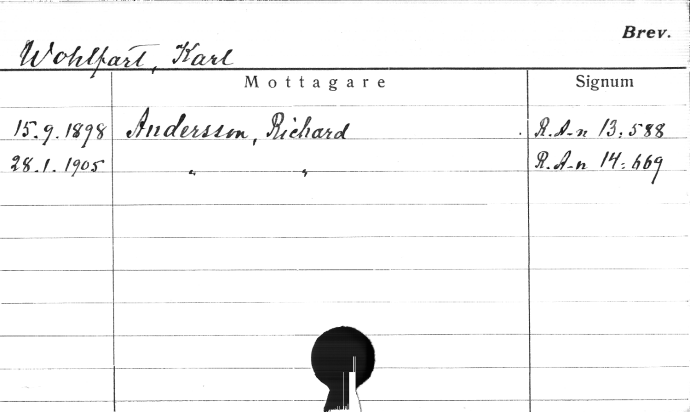 Brev.
Wohlfart, Karl
Mottagare Signum
15.9.1898 Andersson, Richard R.A-n 13:588
28.1.1905 " " R.A-n 14:669